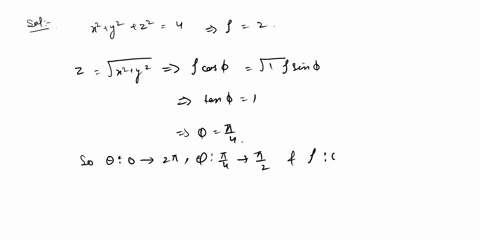 Sol:- x²+y²+z² = 4 ⇒ ρ = 2.
z = √(x²+y²) ⇒ ρ cos ϕ = √1 ρ sin ϕ
⇒ tan ϕ = 1
⇒ ϕ = π/4.
So θ : 0 → 2π, ϕ : π/4 → π/2 & ρ : (